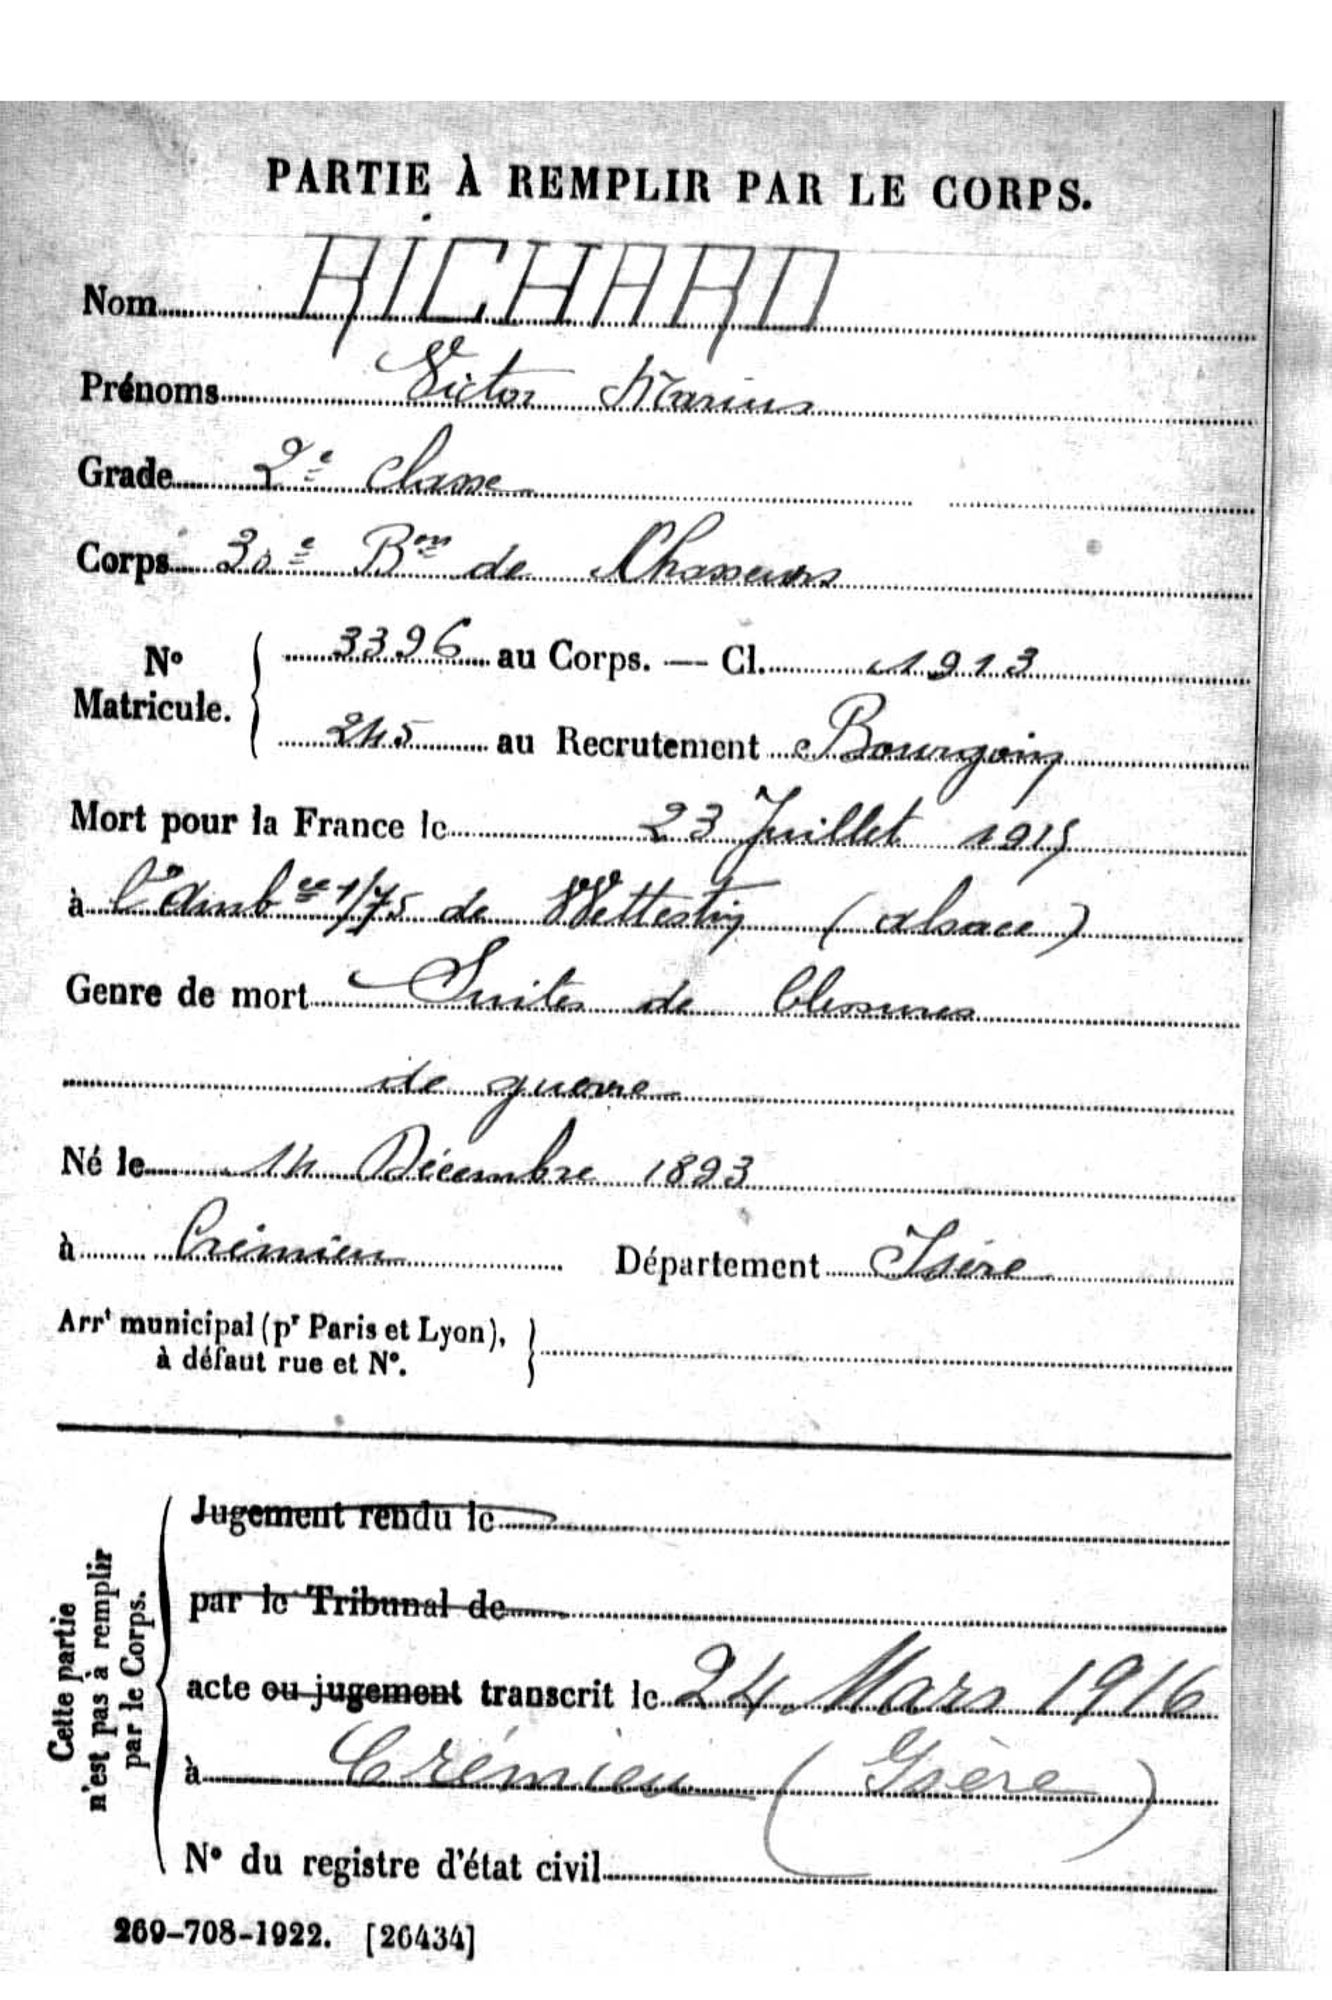 PARTIE À REMPLIR PAR LE CORPS.
Nom RICHARD
Prénoms Victor Marius
Grade 2e classe
Corps 30e Bon de Chasseurs
No Matricule. 3396 au Corps. — Cl. 1913
245 au Recrutement Bourgoin
Mort pour la France le 23 Juillet 1915
à l'Ambce 1/75 de Wettestin (alsace)
Genre de mort Suites de blessures
de guerre
Né le 14 Décembre 1893
à Crémieu Département Isère
Arrt municipal (pr Paris et Lyon),
à défaut rue et No.
Cette partie
n'est pas à remplir
par le Corps.
Jugement rendu le
par le Tribunal de
acte ou jugement transcrit le 24 Mars 1916
à Crémieu (Isère)
No du registre d'état civil
269-708-1922. [26434]